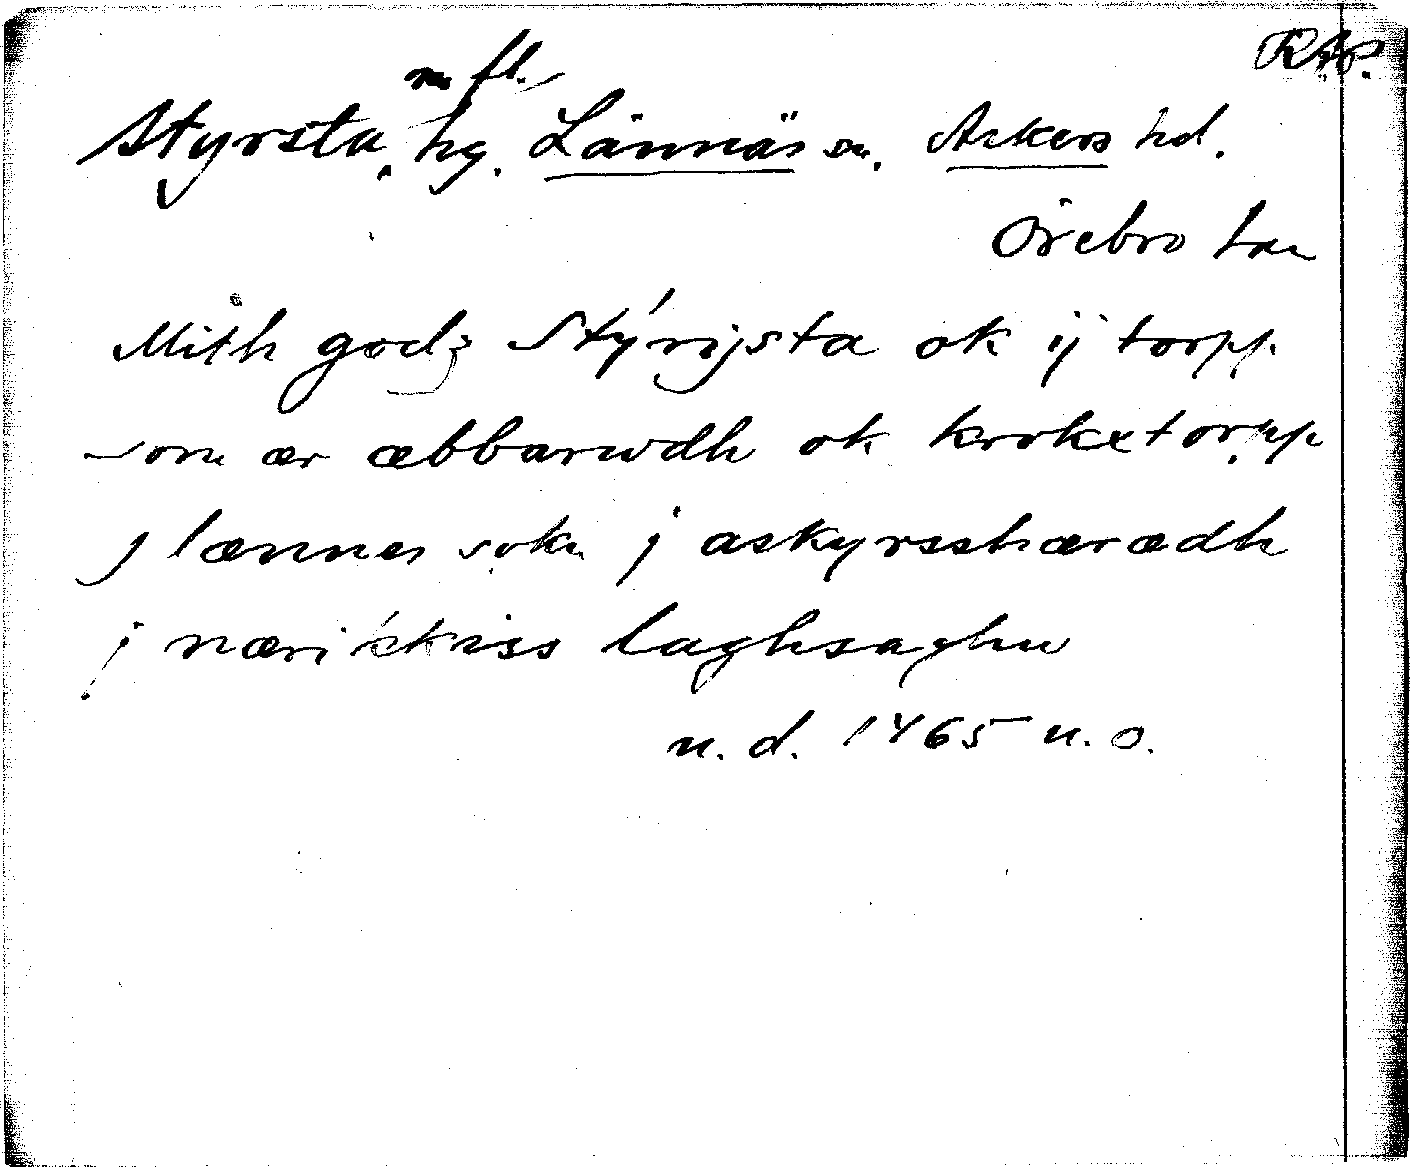 RAP.
m. fl.
Styrsta, hg. Lännäs sn. Askers hd.
Örebro län
Mith godz Stýrijsta ok ij torpp
som ær æbbarwdh ok kroketorpp
j lænnes sokn j askyrsshæradh
j næriskiss laghsaghu
u. d. 1465 u. o.